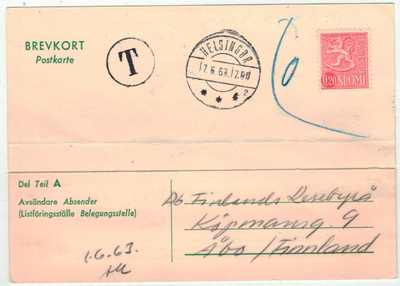 BREVKORT
Postkarte
T
HELSINGØR
17.6.63.17.00
6
0,20 SUOMI
Del Teil A
Avsändare Absender
(Listföringsställe Belegungsstelle)
Ab Finlands Resebyrå
Köpmansg. 9
Åbo / Finnland
1.6.63.